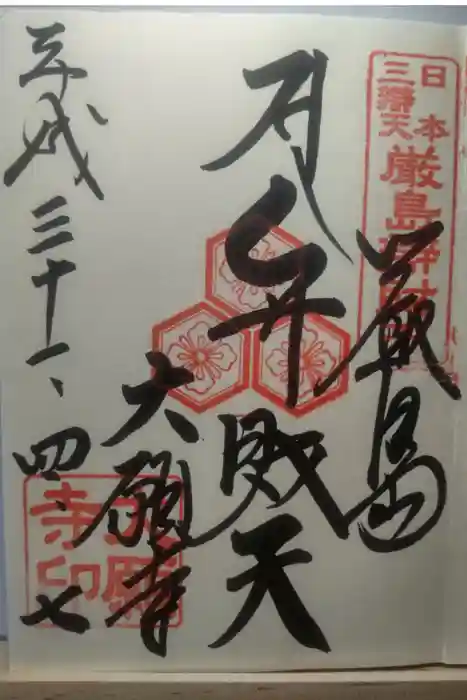 日本
三辨天
厳島辨財
厳島
弁財天
大願寺
大願寺印
平成三十一、四、七